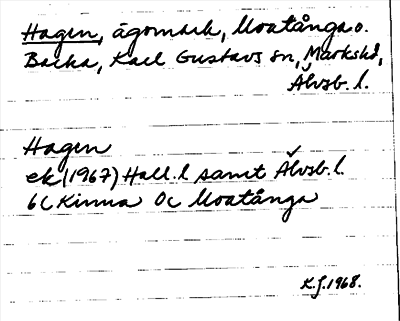 Hagen, ägomark, Moatånga o.
Backa, Karl Gustavs sn, Marks hd,
Älvsb. l.
Hagen
ek (1967) Hall. l samt Älvsb. l.
6C Kinna 0c Moatånga
K.J. 1968.